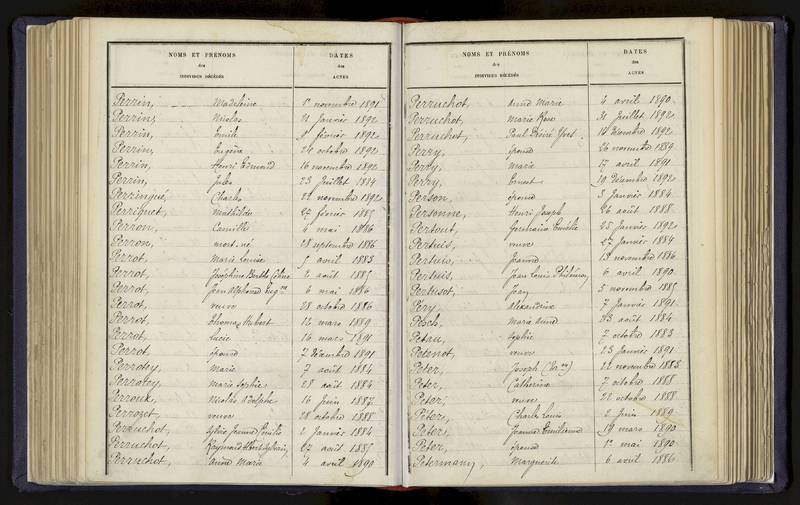 NOMS ET PRÉNOMS
des
INDIVIDUS DÉCÉDÉS
DATES
des
ACTES
Perrin, Madeleine 1er novembre 1891
Perrin, Nicolas 21 Janvier 1892
Perrin, Emile février 1892
Perrin, Eugène 24 octobre 1892
Perrin, Henri Edmond 16 novembre 1892
Perrin, Jules 23 Juillet 1884
Perringué, Charles 22 novembre 1892
Perriquet, Mathilde 27 février 1885
Perron, Camille 4 mai 1886
Perron, mort-né 28 septembre 1886
Perrot, Marie Louise 5 avril 1883
Perrot, Joséphine Berthe Céline 2 août 1885
Perrot, Jean Alphonse 6 mai 1886
Perrot, veuve 28 octobre 1886
Perrot, Thomas Hubert 12 mars 1889
Perrot, Lucie 24 mars 1891
Perrot, épouse 7 Décembre 1891
Perrotey, Marie 7 août 1884
Perrotey, Marie Sophie 28 août 1884
Perroux, Nicolas Adolphe 16 Juin 1887
Perrozet, veuve 28 octobre 1888
Perruchot, Sylvie Jeanne Emilie 2 Janvier 1884
Perruchot, Raymond Albert 17 août 1885
Perruchot, Anne Marie 4 avril 1890
NOMS ET PRÉNOMS
des
INDIVIDUS DÉCÉDÉS
DATES
des
ACTES
Perruchot, Anne Marie 4 avril 1890
Perruchot, Marie Rose 31 Juillet 1892
Perruchot, Paul Désiré 14 Décembre 1892
Perry, épouse 26 novembre 1889
Perry, Marie 17 avril 1891
Perry, Ernest 19 Décembre 1892
Person, épouse 3 Janvier 1884
Personne, Henri Joseph 26 août 1888
Pertout, Germaine Emélie 25 Janvier 1892
Pertuis, veuve 27 Janvier 1884
Pertuis, Jeanne 13 novembre 1886
Pertuis, Jean Louis 6 avril 1890
Pertusot, Jean 5 novembre 1885
Pery, Alexandrine 7 Janvier 1891
Pesch, Marie Anne 23 août 1884
Petau, Sophie 7 octobre 1883
Petenot, veuve 23 Janvier 1891
Peter, Joseph 22 novembre 1883
Peter, Catherine 7 octobre 1888
Peter, veuve 22 octobre 1888
Peter, Charles Louis 2 Juin 1889
Peter, Jeanne Emilienne 19 mars 1890
Peter, épouse 1er mai 1890
Petermann, Marguerite 6 avril 1886